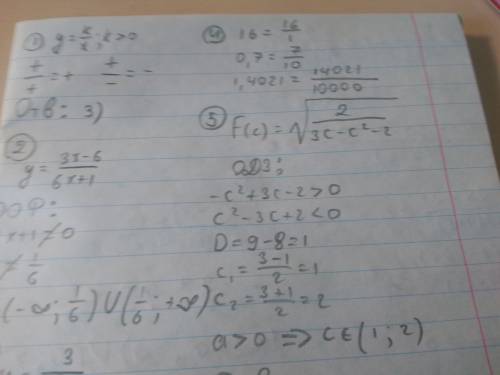 ① y = k/x; k>0
+/+ = + +/− = −
Отв: 3)
② y = 3x−6/6x+1
ООФ:
x+1≠0
≠ 1/6
(−∞; 1/6) ∪ (1/6; +∞)
3
④ 16 = 16/1
0,7 = 7/10
1,4021 = 14021/10000
⑤ F(c) = √(2/3c−c²−2)
ОДЗ:
−c²+3c−2>0
c²−3c+2<0
D=9−8=1
c₁ = 3−1/2 = 1
c₂ = 3+1/2 = 2
a>0 => c∈(1;2)